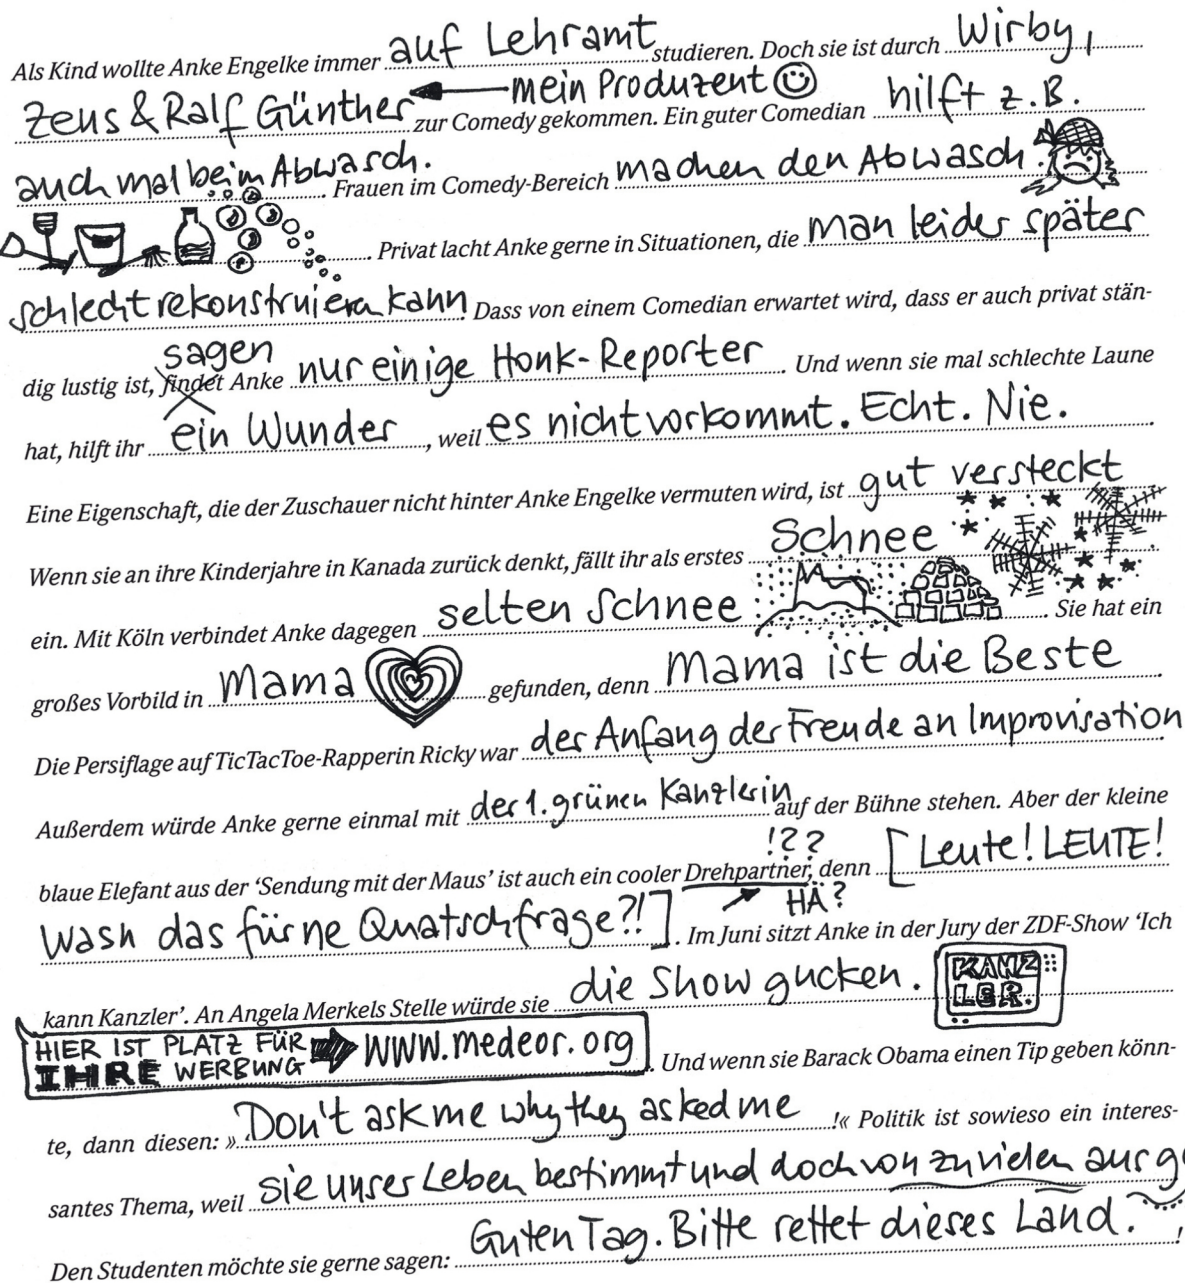 Als Kind wollte Anke Engelke immer auf Lehramt studieren. Doch sie ist durch Wirby,
Zeus & Ralf Günther ← mein Produzent ☺ zur Comedy gekommen. Ein guter Comedian hilft z.B.
auch mal beim Abwasch. Frauen im Comedy-Bereich machen den Abwasch.
Privat lacht Anke gerne in Situationen, die man leider später
schlecht rekonstruieren kann. Dass von einem Comedian erwartet wird, dass er auch privat stän-
dig lustig ist, findet sagen Anke nur einige Honk-Reporter. Und wenn sie mal schlechte Laune
hat, hilft ihr ein Wunder, weil es nicht vorkommt. Echt. Nie.
Eine Eigenschaft, die der Zuschauer nicht hinter Anke Engelke vermuten wird, ist gut versteckt
Wenn sie an ihre Kinderjahre in Kanada zurück denkt, fällt ihr als erstes Schnee
ein. Mit Köln verbindet Anke dagegen selten Schnee. Sie hat ein
großes Vorbild in Mama gefunden, denn Mama ist die Beste.
Die Persiflage auf TicTacToe-Rapperin Ricky war der Anfang der Freude an Improvisation.
Außerdem würde Anke gerne einmal mit der 1. grünen Kanzlerin auf der Bühne stehen. Aber der kleine
!??
blaue Elefant aus der ‘Sendung mit der Maus’ ist auch ein cooler Drehpartner, denn [Leute! LEUTE!
HÄ?
Wasn das für ne Quatschfrage?!!]. Im Juni sitzt Anke in der Jury der ZDF-Show ‘Ich
kann Kanzler’. An Angela Merkels Stelle würde sie die Show gucken.
KANZ
LER.
HIER IST PLATZ FÜR
IHRE WERBUNG → www.medeor.org. Und wenn sie Barack Obama einen Tip geben könn-
te, dann diesen: » Don't ask me why they asked me !« Politik ist sowieso ein interes-
santes Thema, weil sie unser Leben bestimmt und doch von zu vielen
Den Studenten möchte sie gerne sagen: Guten Tag. Bitte rettet dieses Land. !